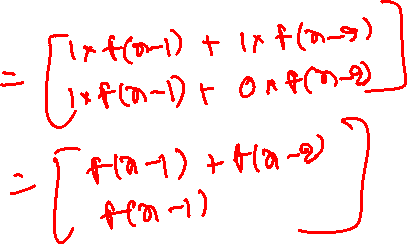 = [ 1×f(n-1) + 1×f(n-2)
1×f(n-1) + 0×f(n-2) ]
= [ f(n-1) + f(n-2)
f(n-1) ]